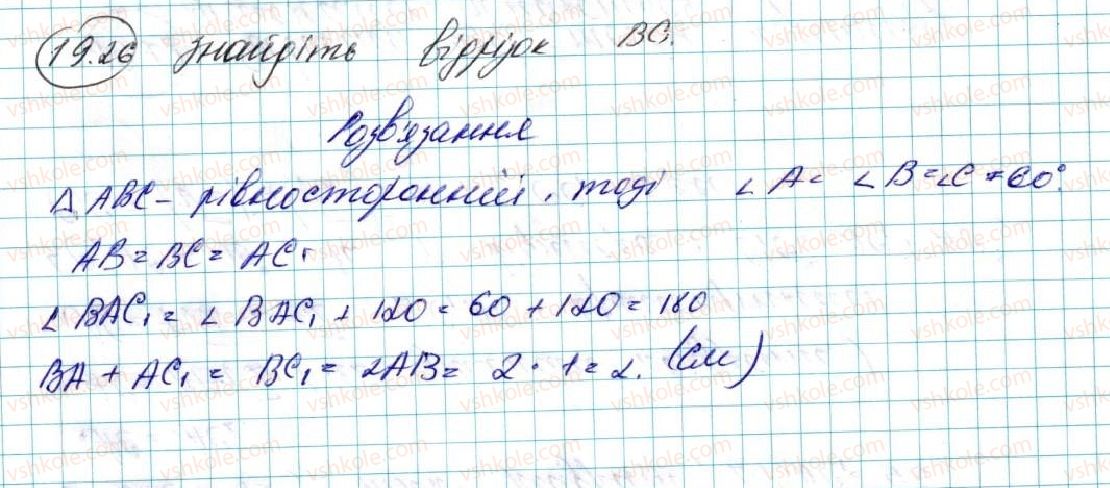 19.26 Знайдіть відрізок BC.
Розв'язання
△ ABC - рівносторонній, тоді ∠A = ∠B = ∠C = 60°.
AB = BC = AC,
∠BAC₁ = ∠BAC₁ + 120 = 60 + 120 = 180
BA + AC₁ = BC₁ = 2AB = 2 · 1 = 2. (см)